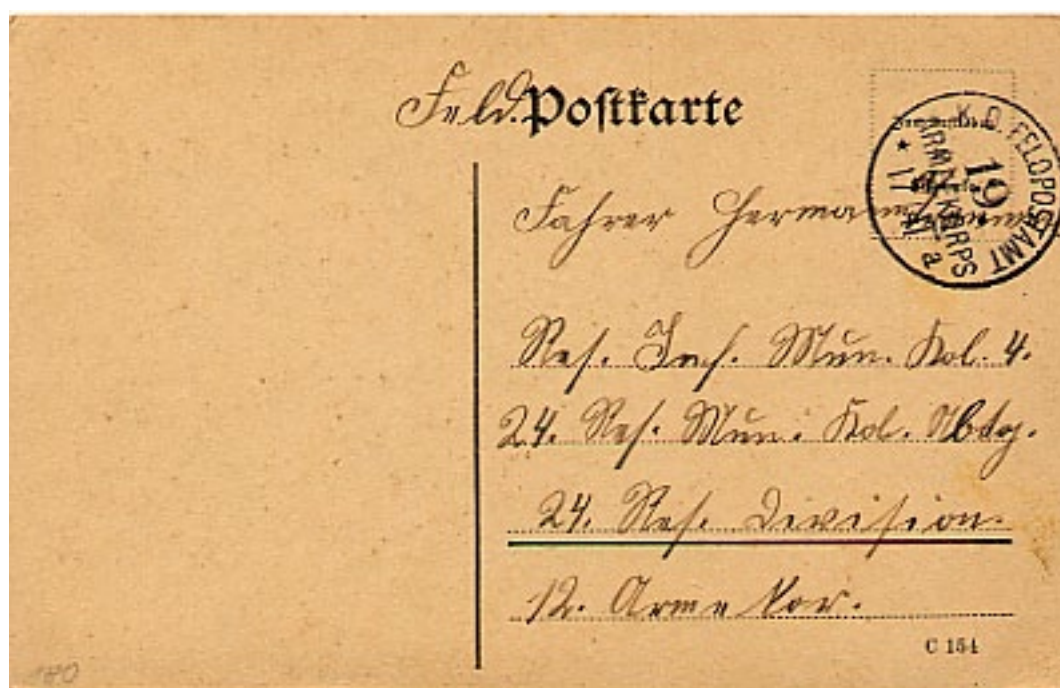 Feld-Postkarte
K. D. FELDPOSTAMT
19.
ARMEEKORPS
* 17 a
Fahrer Hermann
Res. Inf. Mun. Kol. 4.
24. Res. Mun. Kol. Abtg.
24. Res. Division.
12. Arme Kor.
C 154
180